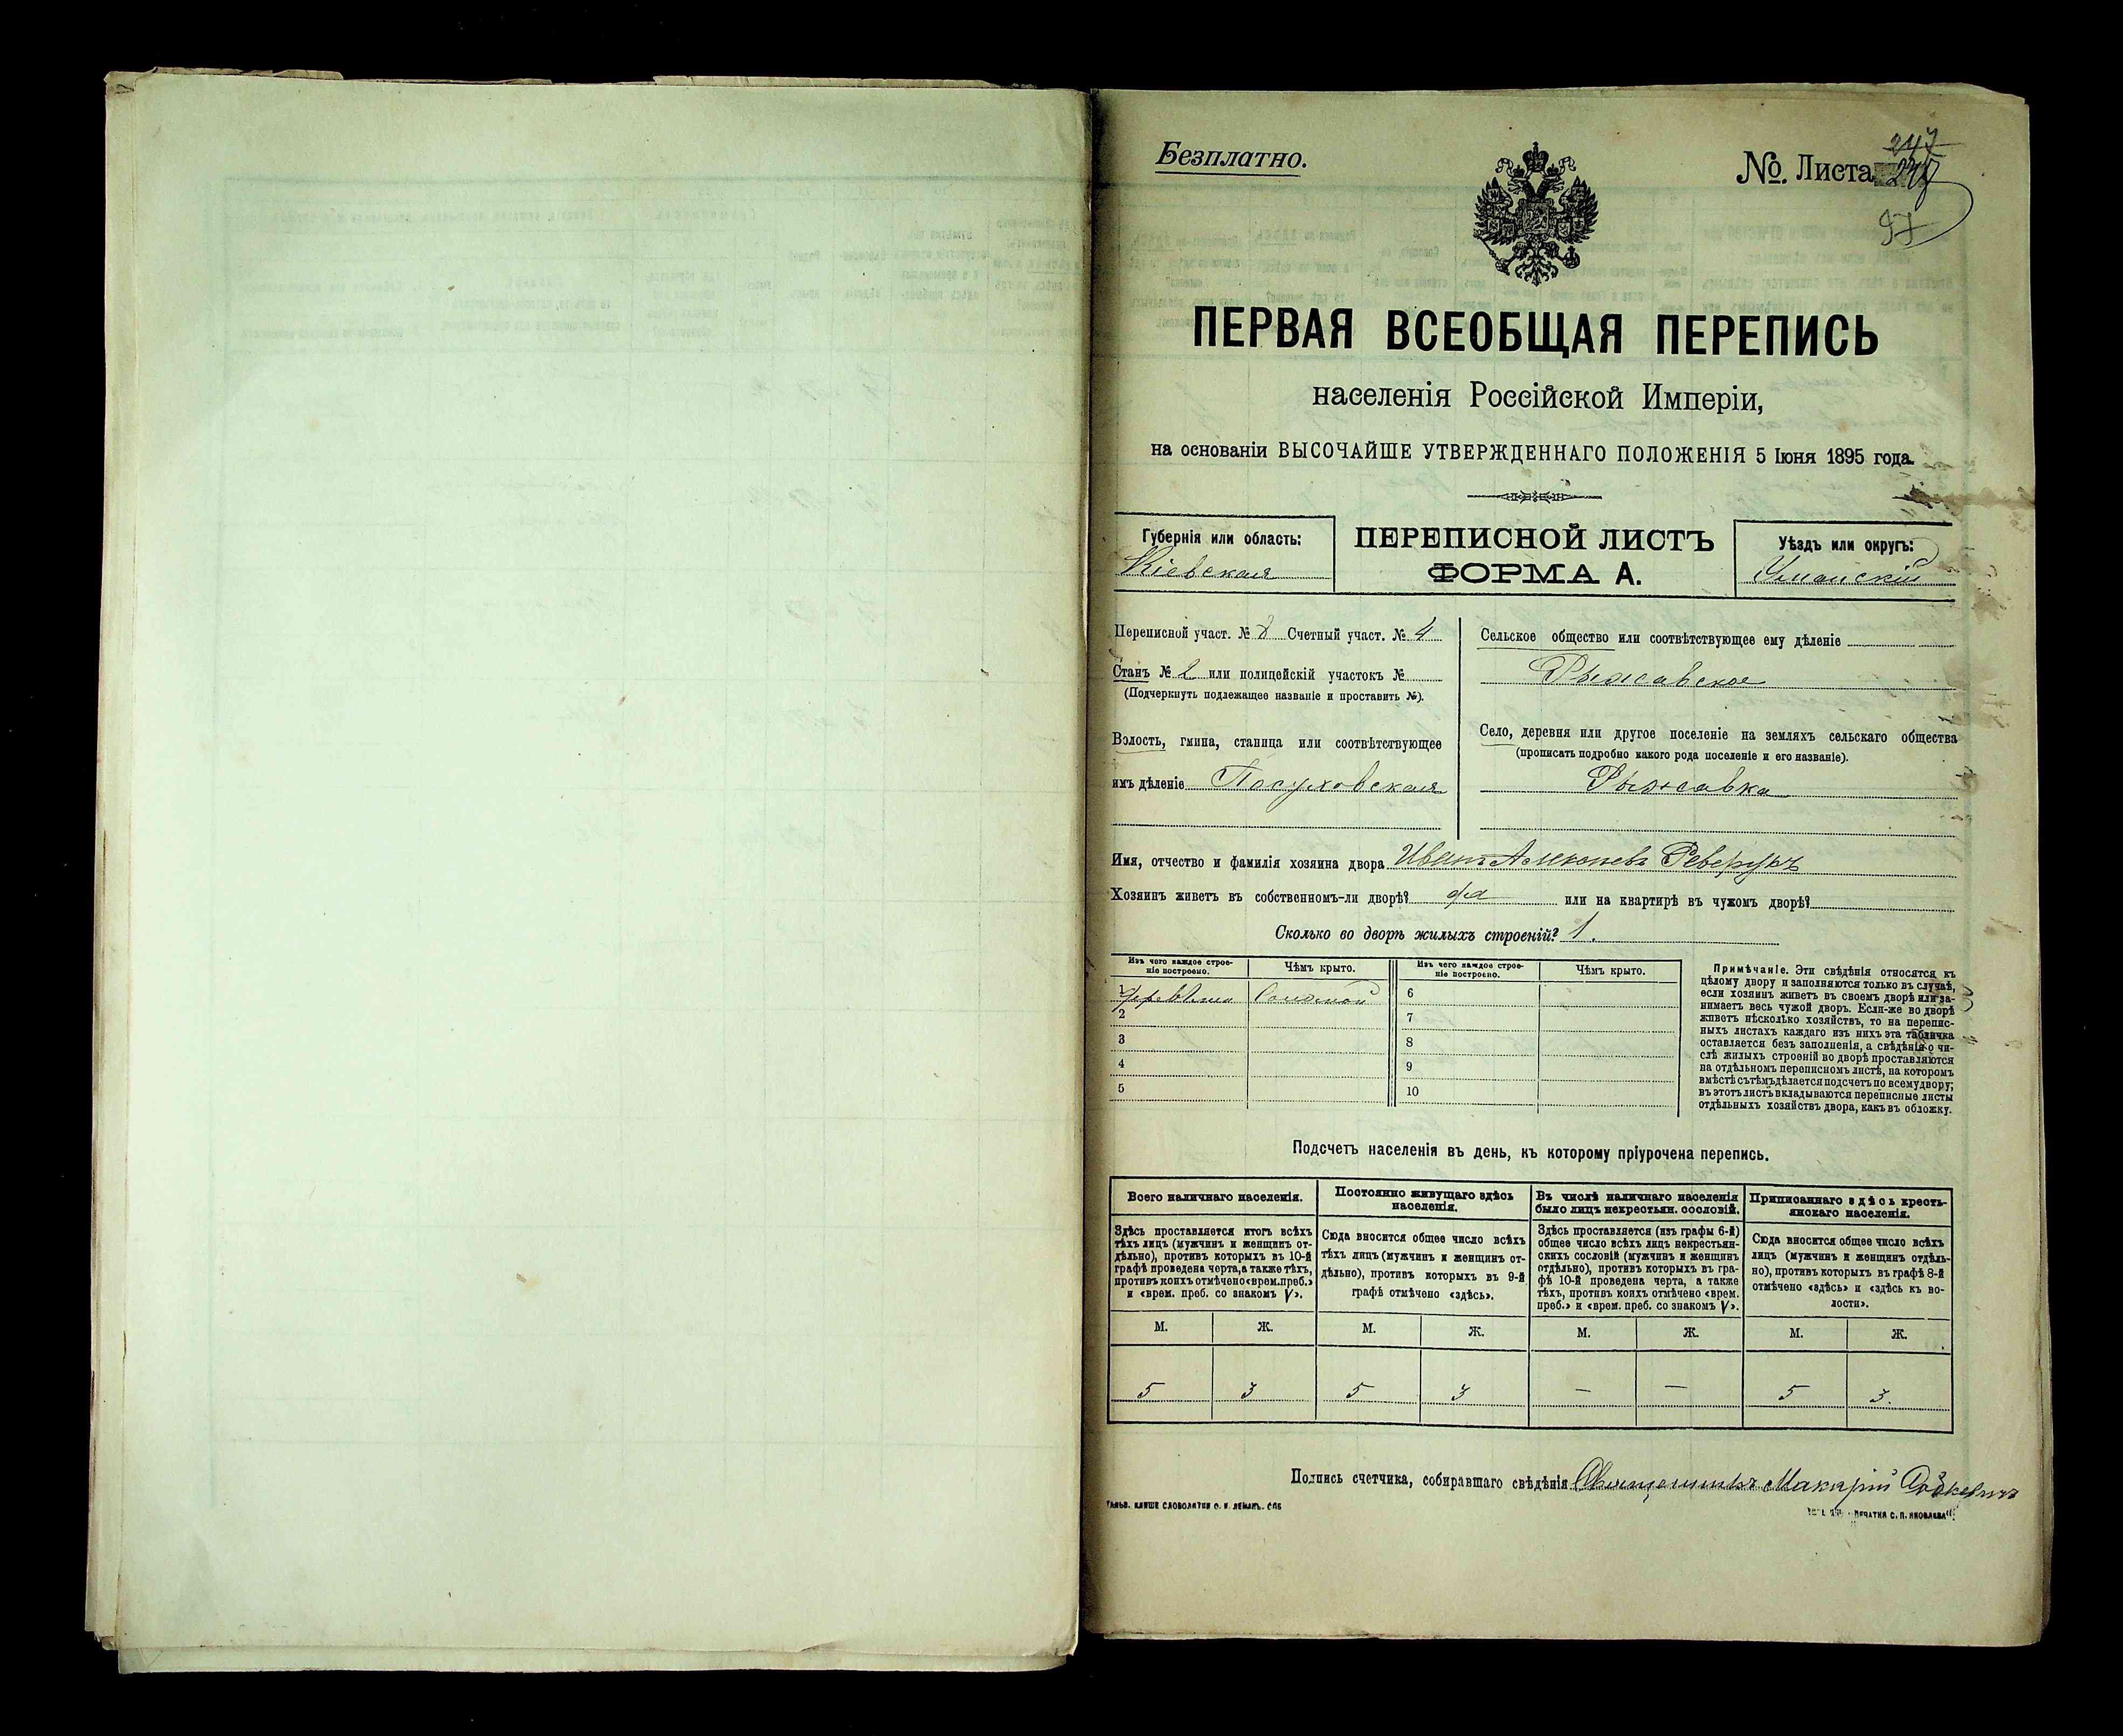 Безплатно.
№. Листа
247
97
ПЕРВАЯ ВСЕОБЩАЯ ПЕРЕПИСЬ
населенія Россійской Имперіи,
на основаніи ВЫСОЧАЙШЕ УТВЕРЖДЕННАГО ПОЛОЖЕНІЯ 5 Іюня 1895 года.
Губернія или область:
Кіевская
ПЕРЕПИСНОЙ ЛИСТЪ
ФОРМА А.
Уѣздъ или округъ:
Уманскій
Переписной участ. № Счетный участ. № 4
Станъ № 2 или полицейскій участокъ №
(Подчеркнуть подлежащее названіе и проставить №).
Волость, гмина, станица или соотвѣтствующее
имъ дѣленіе Посуховская
Сельское общество или соотвѣтствующее ему дѣленіе
Рыжавское
Село, деревня или другое поселеніе на земляхъ сельскаго общества
(прописать подробно какого рода поселеніе и его названіе).
Рыжавка
Имя, отчество и фамилія хозяина двора Иванъ Реверукъ
Хозяинъ живетъ въ собственномъ-ли дворѣ? да или на квартирѣ въ чужомъ дворѣ?
Сколько во дворѣ жилыхъ строеній? 1.
Изъ чего каждое строе-
ніе построено.
Чѣмъ крыто.
Изъ чего каждое строе-
ніе построено.
Чѣмъ крыто.
1 Соломой 6
2 7
3 8
4 9
5 10
Примѣчаніе. Эти свѣдѣнія относятся къ
цѣлому двору и заполняются только въ случаѣ,
если хозяинъ живетъ въ своемъ дворѣ или за-
нимаетъ весь чужой дворъ. Если-же во дворѣ
живетъ нѣсколько хозяйствъ, то на перепис-
ныхъ листахъ каждаго изъ нихъ эта табличка
оставляется безъ заполненія, а свѣдѣнія о чи-
слѣ жилыхъ строеній во дворѣ проставляются
на отдѣльномъ переписномъ листѣ, на которомъ
вмѣстѣ съ тѣмъ дѣлается подсчетъ по всему двору;
въ этотъ листъ вкладываются переписные листы
отдѣльныхъ хозяйствъ двора, какъ въ обложку.
Подсчетъ населенія въ день, къ которому пріурочена перепись.
Всего наличнаго населенія.
Здѣсь проставляется итогъ всѣхъ
тѣхъ лицъ (мужчинъ и женщинъ от-
дѣльно), противъ которыхъ въ 10-й
графѣ проведена черта, а также тѣхъ,
противъ коихъ отмѣчено «врем. преб.»
и «врем. преб. со знакомъ V».
Постоянно живущаго здѣсь
населенія.
Сюда вносится общее число всѣхъ
тѣхъ лицъ (мужчинъ и женщинъ от-
дѣльно), противъ которыхъ въ 9-й
графѣ отмѣчено «здѣсь».
Въ числѣ наличнаго населенія
было лицъ некрестьян. сословій.
Здѣсь проставляется (изъ графы 6-й)
общее число всѣхъ лицъ некрестьян-
скихъ сословій (мужчинъ и женщинъ
отдѣльно), противъ которыхъ въ гра-
фѣ 10-й проведена черта, а также
тѣхъ, противъ коихъ отмѣчено «врем.
преб.» и «врем. преб. со знакомъ V».
Приписаннаго здѣсь кресть-
янскаго населенія.
Сюда вносится общее число всѣхъ
лицъ (мужчинъ и женщинъ отдѣль-
но), противъ которыхъ въ графѣ 8-й
отмѣчено «здѣсь» и «здѣсь къ во-
лости».
М. Ж. М. Ж. М. Ж. М. Ж.
5 3 5 3 — — 5 3.
Подпись счетчика, собиравшаго свѣдѣнія Священникъ Макарій
ГАЛЬВ. КЛИШЕ СЛОВОЛИТНИ О. И. ЛЕМАНЪ. СПБ
ПЕЧАТНЯ С. П. ЯКОВЛЕВА